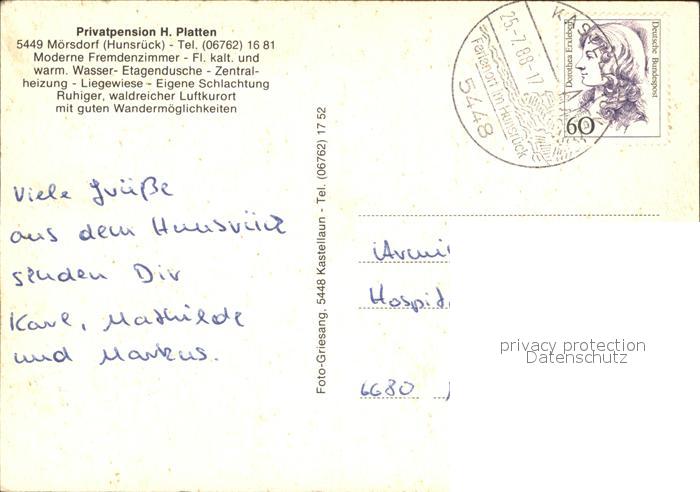 Privatpension H. Platten
5449 Mörsdorf (Hunsrück) - Tel. (06762) 16 81
Moderne Fremdenzimmer - Fl. kalt. und
warm. Wasser- Etagendusche - Zentral-
heizung - Liegewiese - Eigene Schlachtung
Ruhiger, waldreicher Luftkurort
mit guten Wandermöglichkeiten
Viele Grüße
aus dem Hunsrück
senden Dir
Karl, Mathilde
und Markus.
Foto-Griesang, 5448 Kastellaun - Tel. (06762) 17 52
25.-7.88-17
5448
Ferienort im Hunsrück
Dorothea Erxleben
Deutsche Bundespost
60
Hospit
6680
privacy protection
Datenschutz